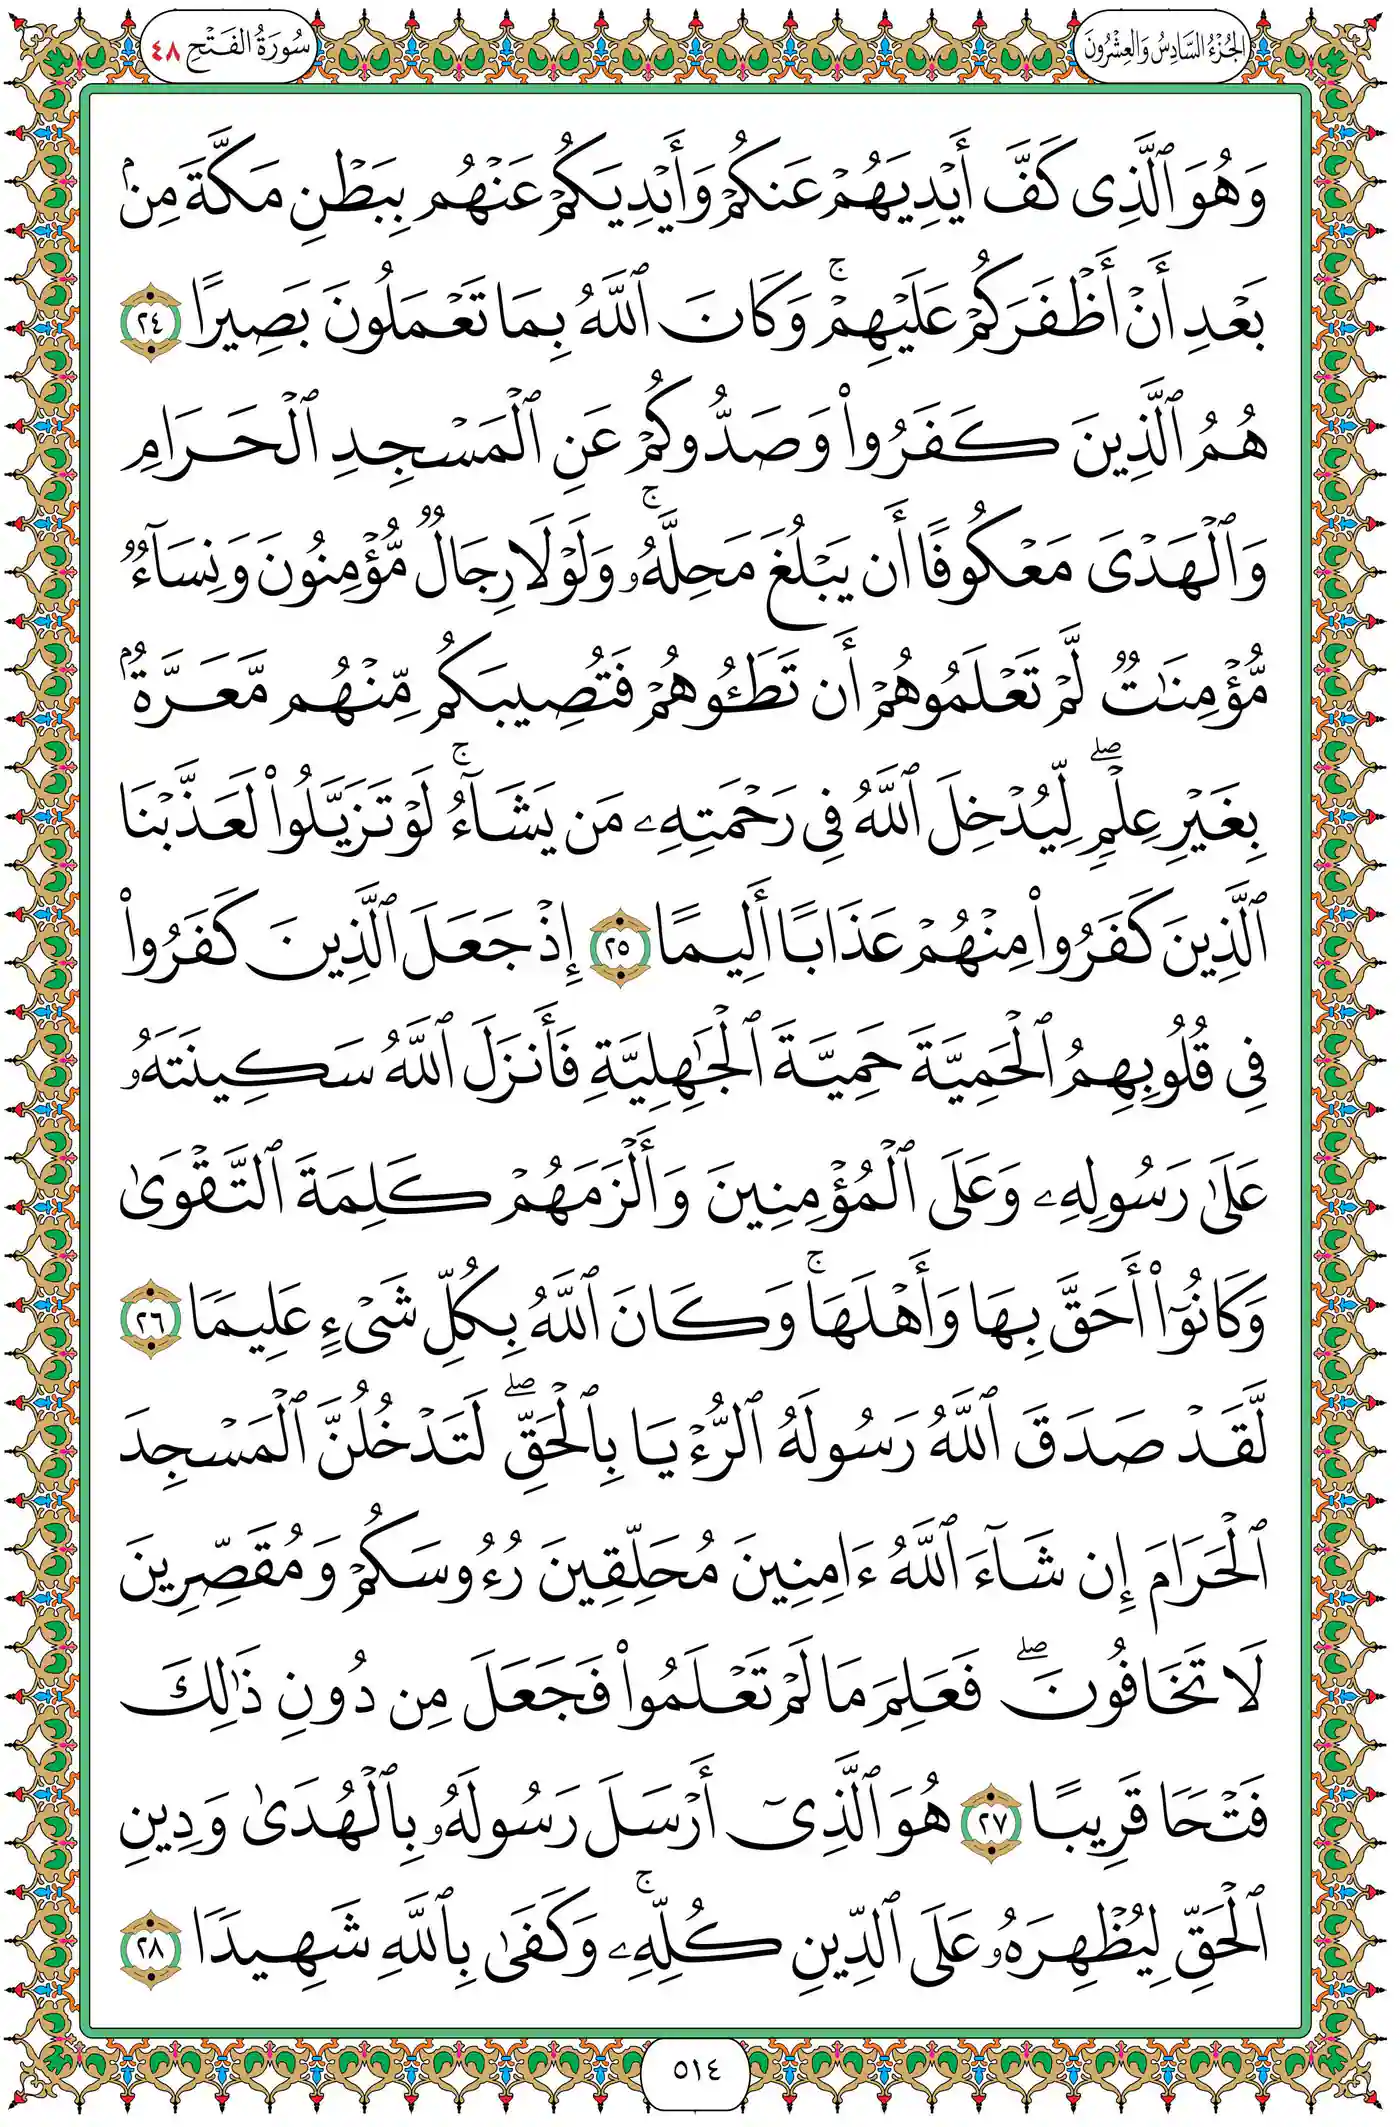 الجُزْءُ السَّادِسُ وَالعِشْرُونَ
سُورَةُ الفَتْحِ ٤٨
وَهُوَ ٱلَّذِى كَفَّ أَيْدِيَهُمْ عَنكُمْ وَأَيْدِيَكُمْ عَنْهُم بِبَطْنِ مَكَّةَ مِنۢ
بَعْدِ أَنْ أَظْفَرَكُمْ عَلَيْهِمْ ۚ وَكَانَ ٱللَّهُ بِمَا تَعْمَلُونَ بَصِيرًا ٢٤
هُمُ ٱلَّذِينَ كَفَرُوا۟ وَصَدُّوكُمْ عَنِ ٱلْمَسْجِدِ ٱلْحَرَامِ
وَٱلْهَدْىَ مَعْكُوفًا أَن يَبْلُغَ مَحِلَّهُۥ ۚ وَلَوْلَا رِجَالٌ مُّؤْمِنُونَ وَنِسَآءٌ
مُّؤْمِنَـٰتٌ لَّمْ تَعْلَمُوهُمْ أَن تَطَـُٔوهُمْ فَتُصِيبَكُم مِّنْهُم مَّعَرَّةٌۢ
بِغَيْرِ عِلْمٍ ۖ لِّيُدْخِلَ ٱللَّهُ فِى رَحْمَتِهِۦ مَن يَشَآءُ ۚ لَوْ تَزَيَّلُوا۟ لَعَذَّبْنَا
ٱلَّذِينَ كَفَرُوا۟ مِنْهُمْ عَذَابًا أَلِيمًا ٢٥ إِذْ جَعَلَ ٱلَّذِينَ كَفَرُوا۟
فِى قُلُوبِهِمُ ٱلْحَمِيَّةَ حَمِيَّةَ ٱلْجَـٰهِلِيَّةِ فَأَنزَلَ ٱللَّهُ سَكِينَتَهُۥ
عَلَىٰ رَسُولِهِۦ وَعَلَى ٱلْمُؤْمِنِينَ وَأَلْزَمَهُمْ كَلِمَةَ ٱلتَّقْوَىٰ
وَكَانُوٓا۟ أَحَقَّ بِهَا وَأَهْلَهَا ۚ وَكَانَ ٱللَّهُ بِكُلِّ شَىْءٍ عَلِيمًا ٢٦
لَّقَدْ صَدَقَ ٱللَّهُ رَسُولَهُ ٱلرُّءْيَا بِٱلْحَقِّ ۖ لَتَدْخُلُنَّ ٱلْمَسْجِدَ
ٱلْحَرَامَ إِن شَآءَ ٱللَّهُ ءَامِنِينَ مُحَلِّقِينَ رُءُوسَكُمْ وَمُقَصِّرِينَ
لَا تَخَافُونَ ۖ فَعَلِمَ مَا لَمْ تَعْلَمُوا۟ فَجَعَلَ مِن دُونِ ذَٰلِكَ
فَتْحًا قَرِيبًا ٢٧ هُوَ ٱلَّذِىٓ أَرْسَلَ رَسُولَهُۥ بِٱلْهُدَىٰ وَدِينِ
ٱلْحَقِّ لِيُظْهِرَهُۥ عَلَى ٱلدِّينِ كُلِّهِۦ ۚ وَكَفَىٰ بِٱللَّهِ شَهِيدًا ٢٨
٥١٤